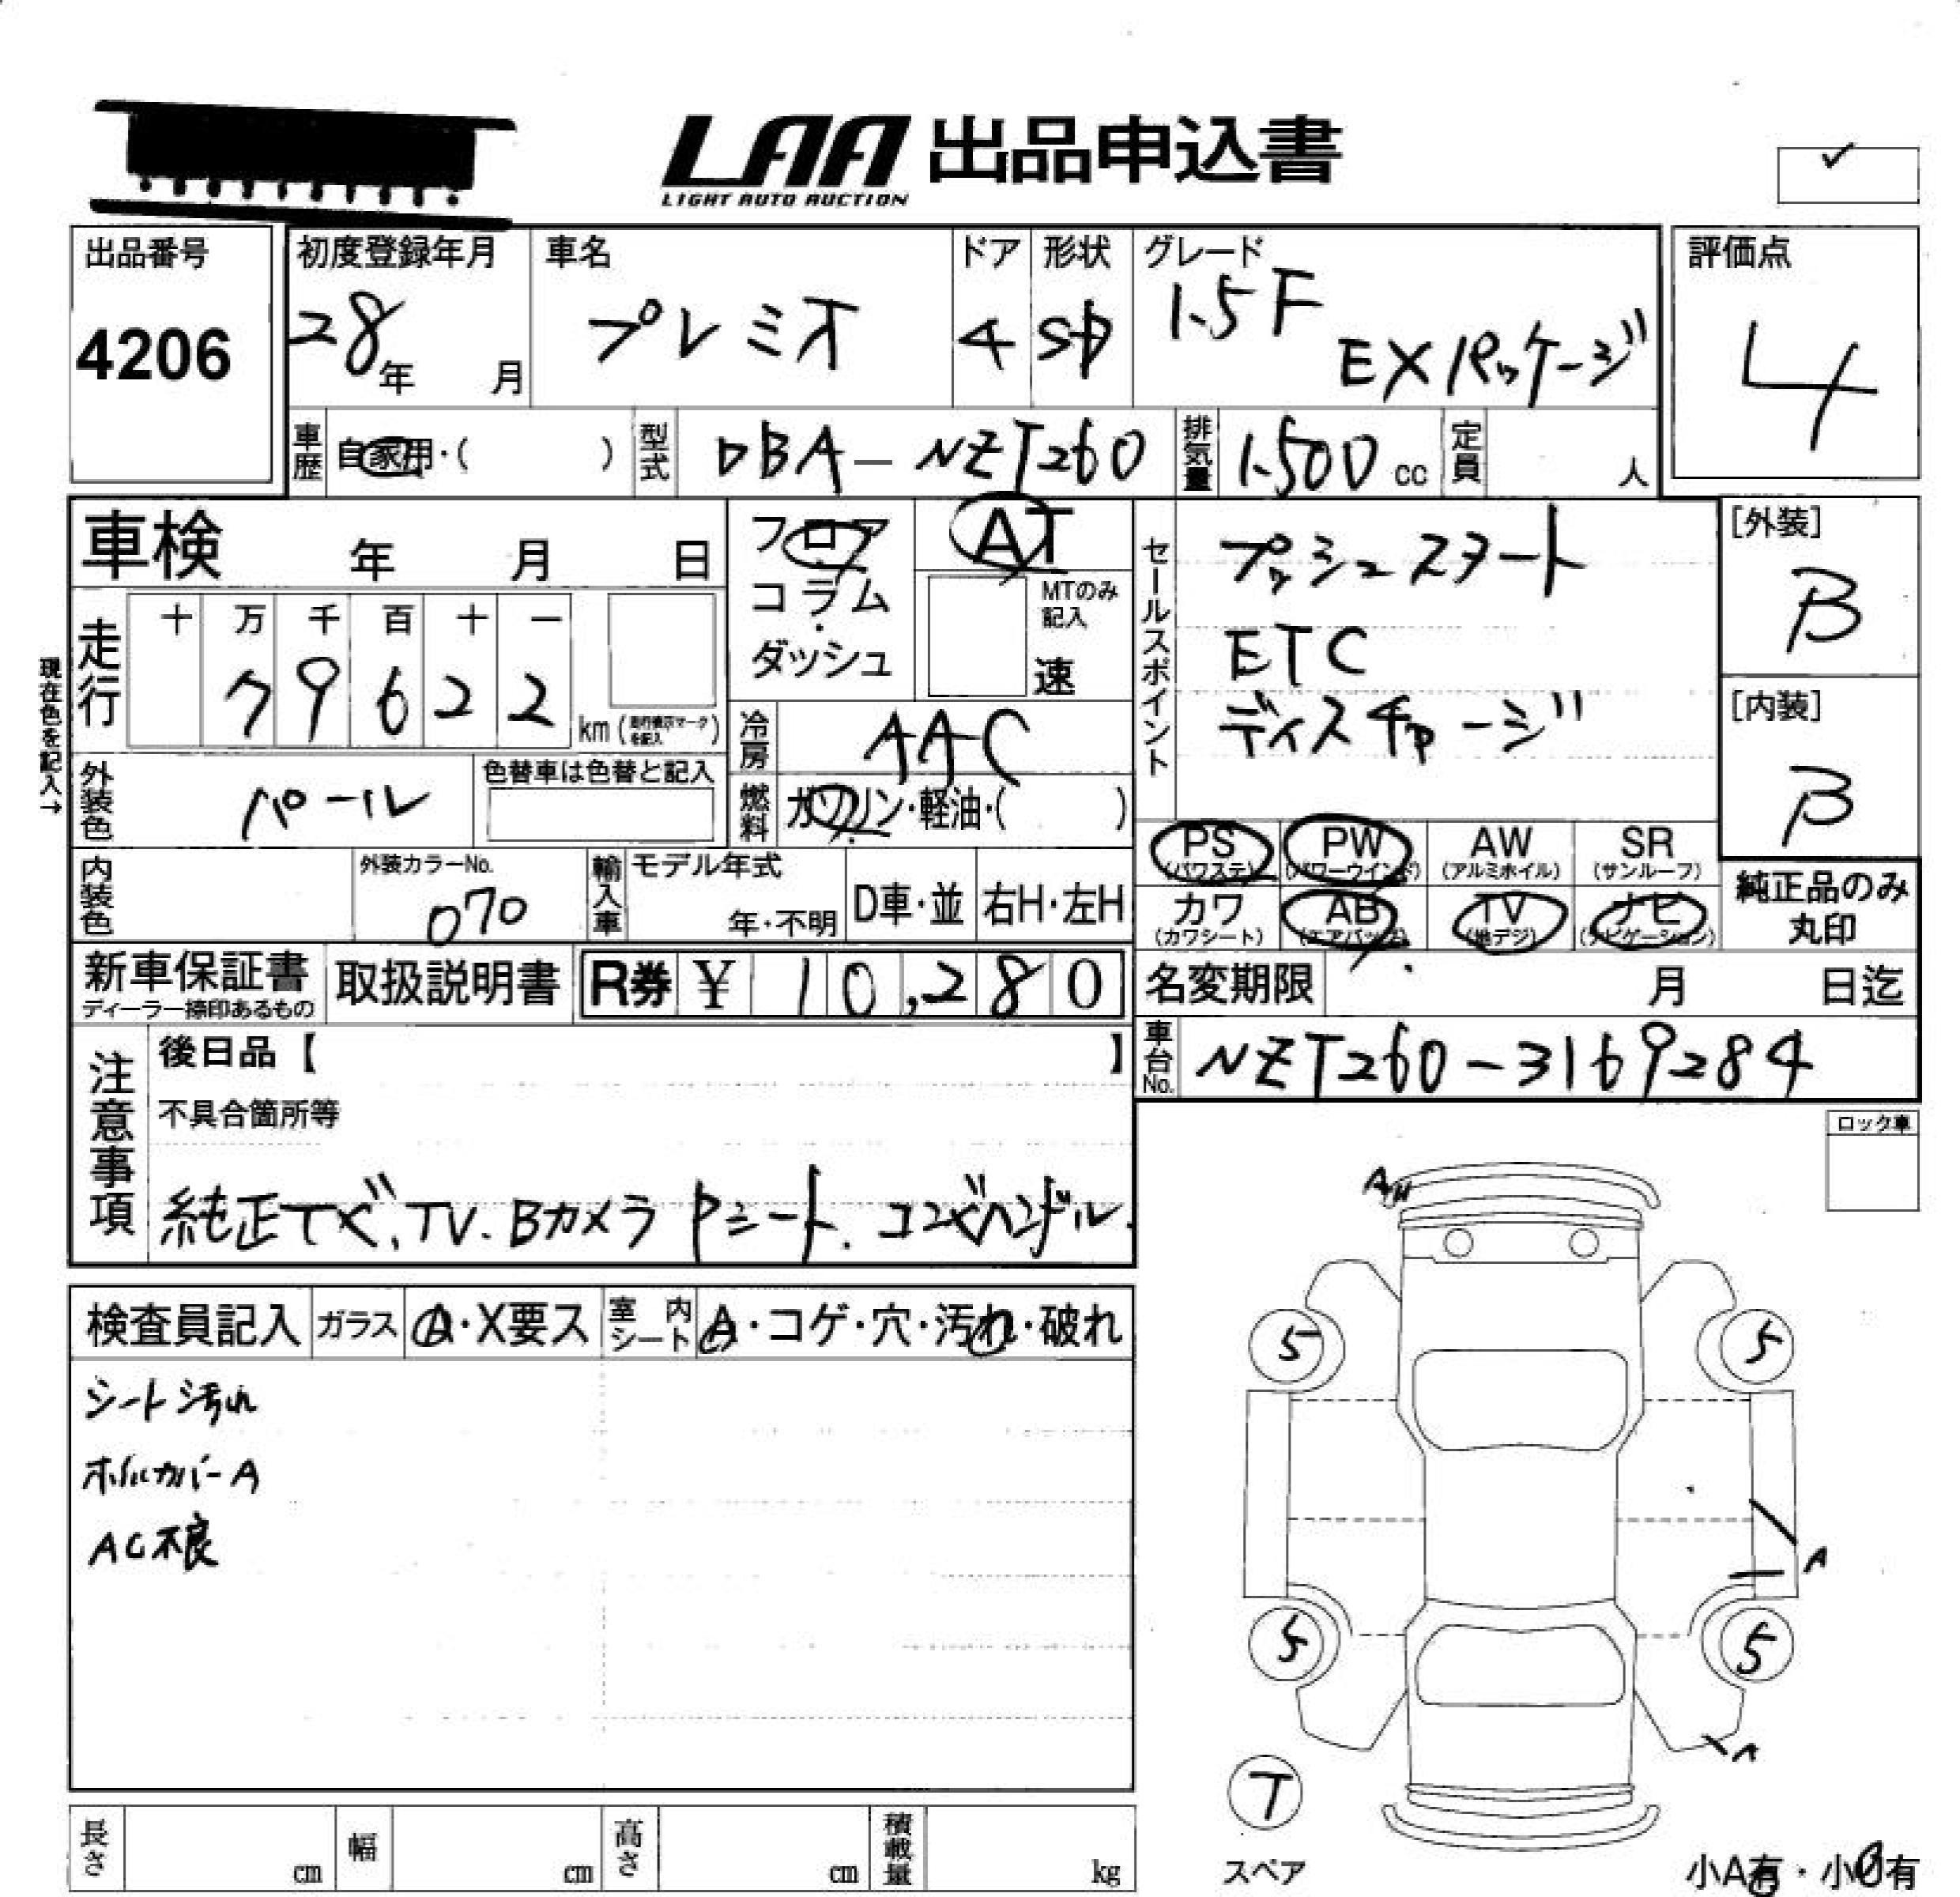 LAA 出品申込書
LIGHT AUTO AUCTION
出品番号
4206
初度登録年月
28年 月
車名
プレミオ
ドア
4
形状
SD
グレード
1.5F
EXパッケージ
評価点
4
車歴 自家用・( )
型式 DBA-NZT260
排気量 1500cc
定員 人
車検 年 月 日
フロア
コラム
・
ダッシュ
AT
MTのみ
記入
速
セールスポイント
プッシュスタート
ETC
ディスチャージ
[外装]
B
[内装]
B
現在色を記入→
走行
十 万 千 百 十 一
7 9 6 2 2
km (走行表示マークを記入)
冷房 AAC
外装色 パール
色替車は色替と記入
燃料 ガソリン・軽油・( )
PS AW PW SR
(パワステ) (パワーウインド) (アルミホイル) (サンルーフ)
カワ AB TV ナビ
(カワシート) (エアバッグ) (地デジ) (ナビゲーション)
純正品のみ
丸印
内装色
外装カラーNo.
070
輸入車
モデル年式
年・不明
D車・並 右H・左H
新車保証書
ディーラー捺印あるもの
取扱説明書
R券 ¥ 10,280
名変期限 月 日迄
車台No. NZT260-3169284
注意事項
後日品【 】
不具合箇所等
純正ナビ、TV.Bカメラ Pシート.コンビハンドル.
ロック車
検査員記入 ガラス A・X要ス 室内シート A・コゲ・穴・汚れ・破れ
シート汚れ
ホイルカバーA
AC不良
A
5 5
A
5 5
A
T
スペア
小A有・小U有
長さ cm 幅 cm 高さ cm 積載量 kg